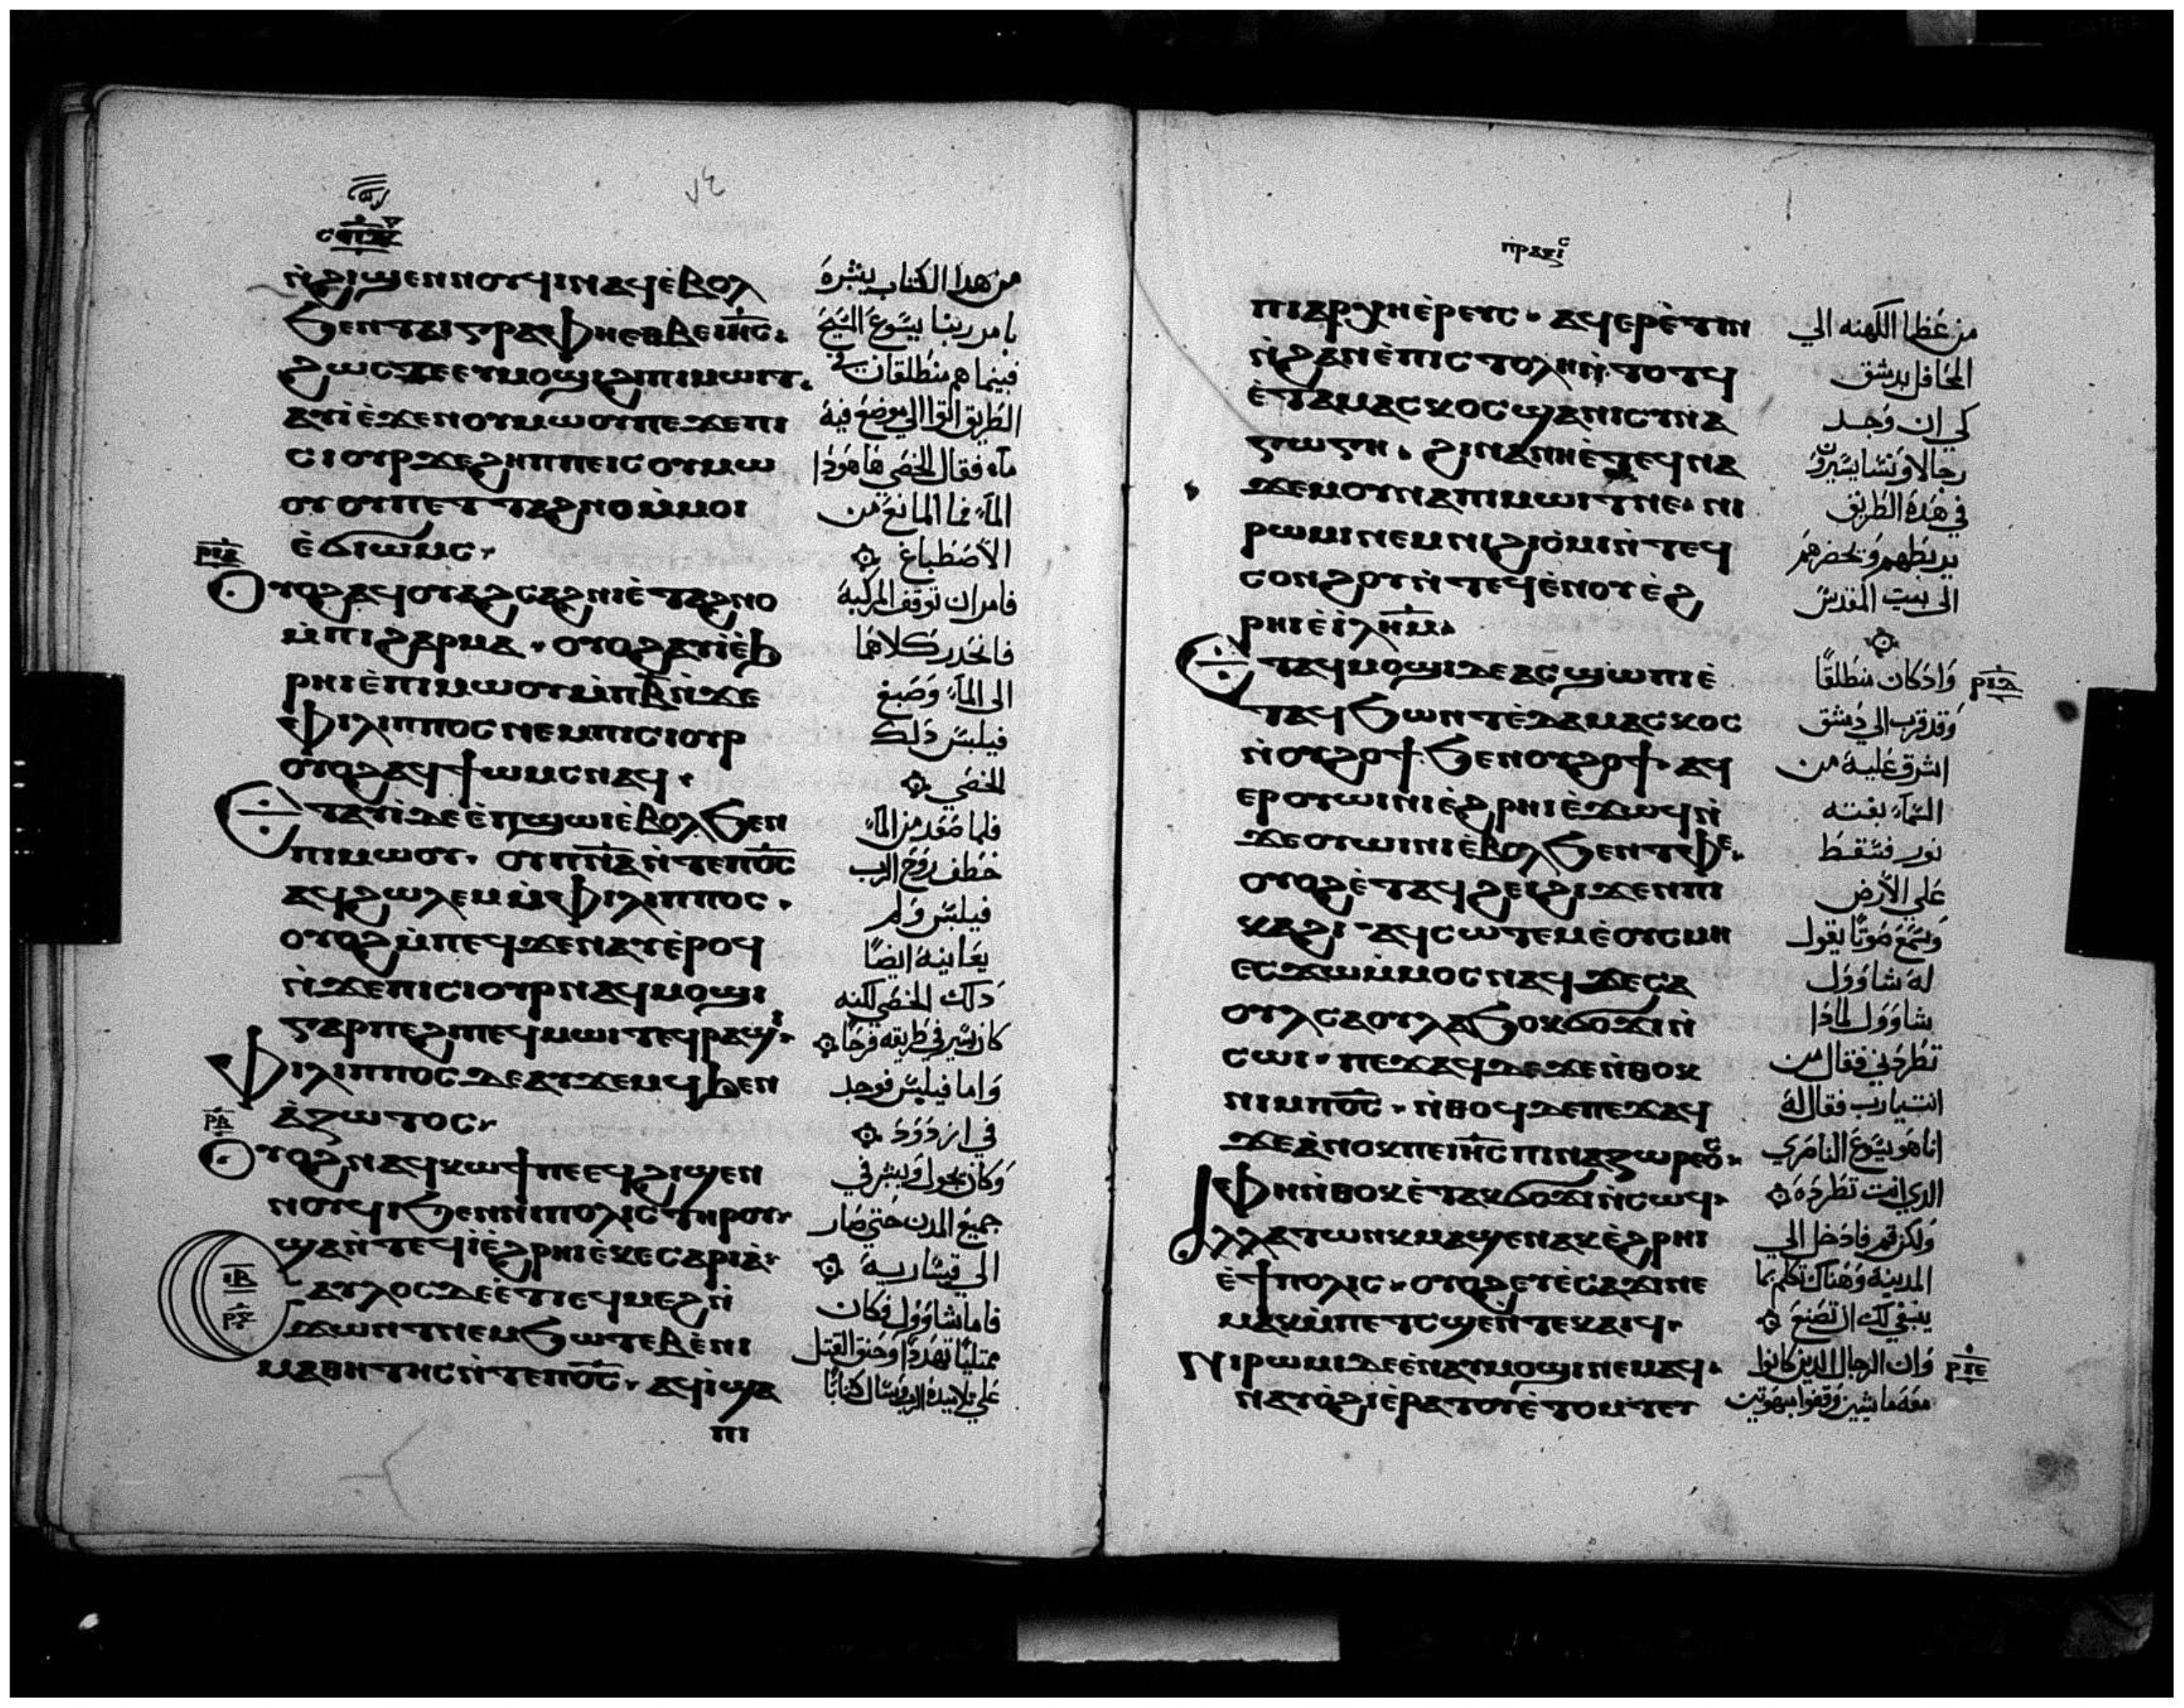 ⲛ̀ϩⲓϣⲉⲛⲛⲟⲩϥⲓⲛⲁϥⲉ̀ⲃⲟⲗ
ϧⲉⲛⲧⲁⲓⲅⲣⲁⲫⲏⲉⲑⲃⲉⲓⲏ̅ⲥ̅.
ϩⲱⲥⲇⲉⲉⲩⲙⲟϣⲓϩⲓⲡⲓⲙⲱⲓⲧ.
ⲁⲩⲓ̀ⲉ̀ϫⲉⲛⲟⲩⲙⲱⲟⲩⲡⲉϫⲉⲡⲓ
ⲥⲓⲟⲩⲣϫⲉϩⲏⲡⲡⲉⲓⲥⲟⲩⲙⲱ
ⲟⲩⲟⲩⲡⲉⲧⲧⲁϩⲛⲟⲙ̀ⲙⲟⲓ
ⲉ̀ϭⲓⲱⲙⲥ
ⲟⲩⲟϩⲁϥⲟⲩⲁϩⲥⲁϩⲛⲓⲉ̀ⲧⲁϩⲛⲟ
ⲙ̀ⲡⲓϩⲁⲣⲙⲁ. ⲟⲩⲟϩⲁⲩⲓ̀ⲉ̀ϧ
ⲣⲏⲓⲉ̀ⲡⲓⲙⲱⲟⲩⲙ̀ⲡⲃ̅ⲛ̀ϫⲉ
ⲫⲓⲗⲓⲡⲡⲟⲥⲛⲉⲙⲡⲓⲥⲓⲟⲩⲣ
ⲟⲩⲟϩⲁϥϯⲱⲙⲥⲛⲁϥ.
ⲉⲧⲁⲩⲓ̀ⲇⲉⲉ̀ⲡϣⲱⲓⲉ̀ⲃⲟⲗϧⲉⲛ
ⲡⲓⲙⲱⲟⲩ. ⲟⲩⲡ̅ⲛ̅ⲁ̅ⲛ̀ⲧⲉⲡⲟ̅ⲥ̅
ⲁϥϩⲱⲗⲉⲙⲙ̀ⲫⲓⲗⲓⲡⲡⲟⲥ.
ⲟⲩⲟϩⲙ̀ⲡⲉϥϫⲉⲛⲁⲩⲉ̀ⲣⲟϥ
ⲛ̀ϫⲉⲡⲓⲥⲓⲟⲩⲣⲛⲁϥⲙⲟϣⲓ
ⲅⲁⲣⲡⲉϩⲓⲡⲉϥⲙⲱⲓⲧⲉϥⲣⲁϣⲓ
ⲫⲓⲗⲓⲡⲡⲟⲥⲇⲉⲁⲩϫⲉⲙϥϧⲉⲛ
ⲁ̀ⲍⲱⲧⲟⲥ
ⲟⲩⲟϩⲛⲁϥⲕⲱϯⲡⲉⲉϥϩⲓϣⲉⲛ
ⲛⲟⲩϥⲓϧⲉⲛⲛⲓⲡⲟⲗⲓⲥⲧⲏⲣⲟⲩ
ϣⲁⲛ̀ⲧⲉϥⲓ̀ⲉ̀ϩⲣⲏⲓⲉ̀ⲕⲉⲥⲁⲣⲓⲁ̀
ⲓⲃ
ⲥⲁⲩⲗⲟⲥⲇⲉⲉ̀ⲧⲓⲉϥⲙⲉϩⲛ̀
ϫⲱⲛⲧⲛⲉⲙϧⲱⲧⲉⲃⲉ̀ⲛⲓ
ⲙⲁⲑⲏⲧⲏⲥⲛ̀ⲧⲉⲡⲟ̅ⲥ̅. ⲁϥⲓ̀ϣⲁ
ⲡⲓ
من هدا الكتاب يبشره
بامر ربنا يسوع المسيح
فبينما هم منطلقان في
الطريق اتوا الي موضع فيه
مآء فقال الخصي ها هودا
المآء فما المانع من
الاصطباغ
فامر ان توقف المركبة
فانحدر كلاهما
الى المآء وصبغ
فيلبس دلك
الخصي
فلما صعد من المآء
خطف روح الرب
فيلبس ولم
يعاينه ايضًا
دلك الخصي لكنه
كان يسير في طريقه فرحًا
واما فيلبس فوجد
في ازدود
وكان يجول ويبشر في
جميع المدن حتي صار
الي قيسارية
فاما شاوول فكان
ممتليًا تهددًا وحنق القتل
علي تلاميد الرب وسال كتابًا
ⲡⲣⲁⲝⲓⲥ
ⲡⲓⲁⲣⲭⲏⲉ̀ⲣⲉⲩⲥ. ⲁϥⲉⲣⲉ̀ⲧⲓⲛ
ⲛ̀ϩⲁⲛⲉ̀ⲡⲓⲥⲧⲟⲗⲏⲛ̀ⲧⲟⲧϥ
ⲉ̀ⲧⲁⲙⲁⲥⲕⲟⲥϣⲁⲛⲓⲥⲩⲛⲁ
ⲅⲱⲅⲏ. ϩⲓⲛⲁⲛⲏⲉ̀ⲧⲉϥⲛⲁ
ϫⲉⲙⲟⲩⲛⲁⲡⲓⲙⲱⲓⲧⲛⲉ. ⲛⲓ
ⲣⲱⲙⲓⲛⲉⲙⲛⲓϩⲓⲟ̀ⲙⲓⲛ̀ⲧⲉϥ
ⲥⲟⲛϩⲟⲩⲛ̀ⲧⲉϥⲉ̀ⲛⲟⲩⲉ̀ϩ
ⲣⲏⲓⲉ̀ⲓ̀ⲗⲏ̅ⲙ̅
ⲉⲧⲁϥⲙⲟϣⲓⲇⲉⲁⲥϣⲱⲡⲓⲉ̀
ⲧⲁϥϧⲱⲛⲧⲉ̀ⲇⲁⲙⲁⲥⲕⲟⲥ
ⲛ̀ⲟⲩϩⲟϯ ϧⲉⲛⲟⲩϩⲟϯ. ⲁϥ
ⲉⲣⲟⲩⲱⲓⲛⲓⲉ̀ϩⲣⲏⲓⲉ̀ϫⲱϥⲛ̀
ϫⲉⲟⲩⲱⲓⲛⲓⲉ̀ⲃⲟⲗϧⲉⲛⲧⲫⲉ.
ⲟⲩⲟϩⲉ̀ⲧⲁϥϩⲉⲓϩⲓϫⲉⲛⲡⲓ
ⲕⲁϩⲓ. ⲁϥⲥⲱⲧⲉⲙⲉ̀ⲟⲩⲥⲙⲏ
ⲉⲥϫⲱⲙ̀ⲙⲟⲥⲛⲁϥϫⲉⲥⲁ
ⲟⲩⲗⲥⲁⲟⲩⲗⲁϧⲟⲕϭⲟϫⲓⲛ̀
ⲥⲱⲓ. ⲡⲉϫⲁϥⲇⲉϫⲉⲛ̀ⲑⲟⲕ
ⲛⲓⲙⲡⲟ̅ⲥ̅. ⲛ̀ⲑⲟϥⲇⲉⲡⲉϫⲁϥ
ϫⲉⲁ̀ⲛⲟⲕⲡⲉⲓⲏ̅ⲥ̅ⲡⲓⲛⲁⲍⲱⲣⲉⲟⲥ
ⲫⲏⲛ̀ⲑⲟⲕⲉ̀ⲧⲁⲕϭⲟϫⲓⲛ̀ⲥⲱϥ
ⲁⲗⲗⲁⲧⲱⲛⲕⲙⲁϣⲉⲛⲁⲕⲉ̀ϩⲣⲏⲓ
ⲉ̀ϯⲡⲟⲗⲓⲥ. ⲟⲩⲟϩⲉⲩⲉ̀ⲥⲁϫⲓⲛⲉ
ⲙⲁⲕⲙ̀ⲡⲉⲧⲥϣⲉⲛⲧⲉⲕⲁⲓϥ
ⲛⲓⲣⲱⲙⲓⲇⲉⲉ̀ⲛⲁⲩⲙⲟϣⲓⲛⲉⲙⲁϥ.
ⲛⲁⲩⲟ̀ϩⲓⲉ̀ⲣⲁⲧⲟⲩⲉ̀ⲧⲟⲙⲧⲉⲧ
من عظما الكهنه الي
المحافل بدمشق
كي ان وجد
رجالا ونسا يسيرون
في هده الطريق
يربطهم ويحضرهم
الى بيت المقدس
واد كان منطلقًا
وقد قرب الي دمشق
اشرق عليه من
السمآء بغته
نور فسقط
علي الارض
وسمع صوتًا يقول
له شاوول
شاوول لمادا
تطردني فقال من
انت يارب فقال له
انا هو يسوع الناصري
الدي انت تطرده
ولكن قم فادخل الي
المدينة وهناك تكلم بما
ينبغي لك ان تصنع
وان الرجال الدين كانوا
معه ماشيين وقفوا مبهوتين